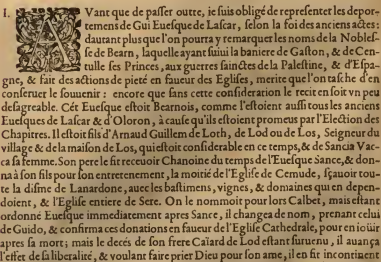 I. AVant que de passer outre, ie suis obligé de representer les depor-
temens de Gui Euesque de Lascar, selon la foi des anciens actes:
dautant plus que l'on pourra y remarquer les noms de la Nobles-
se de Bearn, laquelle ayant suiui la baniere de Gaston, & de Cen-
tulle ses Princes, aux guerres sainctes de la Palestine, & d'Espa-
gne, & fait des actions de pieté en faueur des Eglises, merite que l'on tasche d'en
conseruer le souuenir: encore que sans cette consideration le recit en soit vn peu
desagreable. Cét Euesque estoit Bearnois, comme l'estoient aussi tous les anciens
Euesques de Lascar & d'Oloron, à cause qu'ils estoient promeus par l'Election des
Chapitres. Il estoit fils d'Arnaud Guillem de Loth, de Lod ou de Los, Seigneur du
village & de la maison de Los, qui estoit considerable en ce temps, & de Sancia Vac-
ca sa femme. Son pere le fit receuoir Chanoine du temps de l'Euesque Sance, & don-
na à son fils pour son entretenement, la moitié de l'Eglise de Cemude, sçauoir tou-
te la disme de Lanardone, auec les bastimens, vignes, & domaines qui en depen-
doient, & l'Eglise entiere de Sere. On le nommoit pour lors Calbet, mais estant
ordonné Euesque immediatement apres Sance, il changea de nom, prenant celui
de Guido, & confirma ces donations en faueur de l'Eglise Cathedrale, pour en ioüir
apres sa mort; mais le deces de son frere Caïard de Lod estant suruenu, il auança
l'effet de sa liberalité, & voulant faire prier Dieu pour son ame, il en fit incontinent